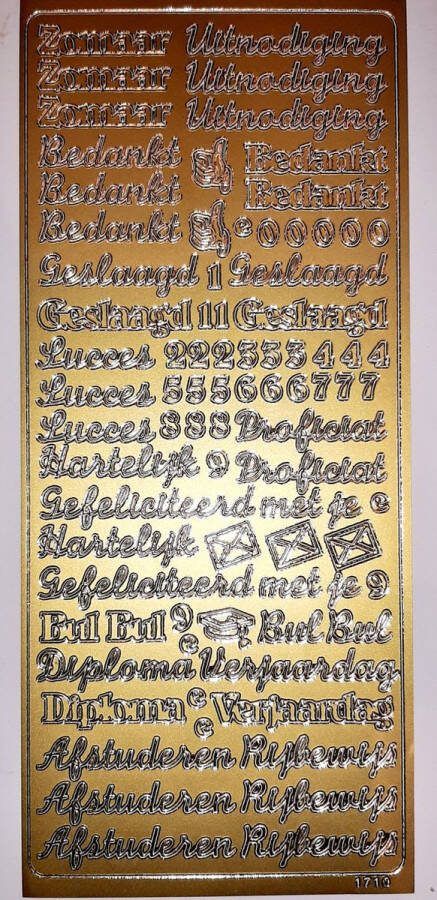 Zomaar Uitnodiging
Zomaar Uitnodiging
Zomaar Uitnodiging
Bedankt Bedankt
Bedankt Bedankt
Bedankt e 00000
Geslaagd 1 Geslaagd
Geslaagd 11 Geslaagd
Succes 222333444
Succes 555666777
Succes 888 Proficiat
Hartelijk 9 Proficiat
Gefeliciteerd met je e
Hartelijk
Gefeliciteerd met je 9
Bul Bul 9 e Bul Bul
Diploma Verjaardag
Diploma e e Verjaardag
Afstuderen Rijbewijs
Afstuderen Rijbewijs
Afstuderen Rijbewijs
1710